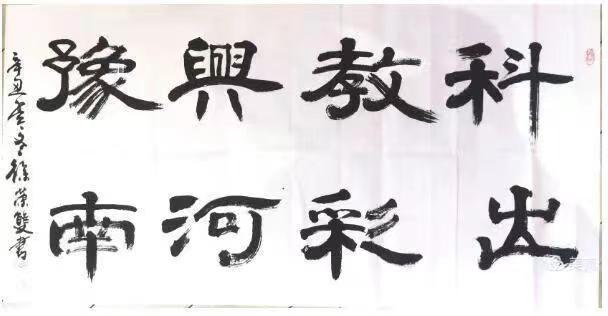 科教興豫
出彩河南
辛丑冬徐雙書